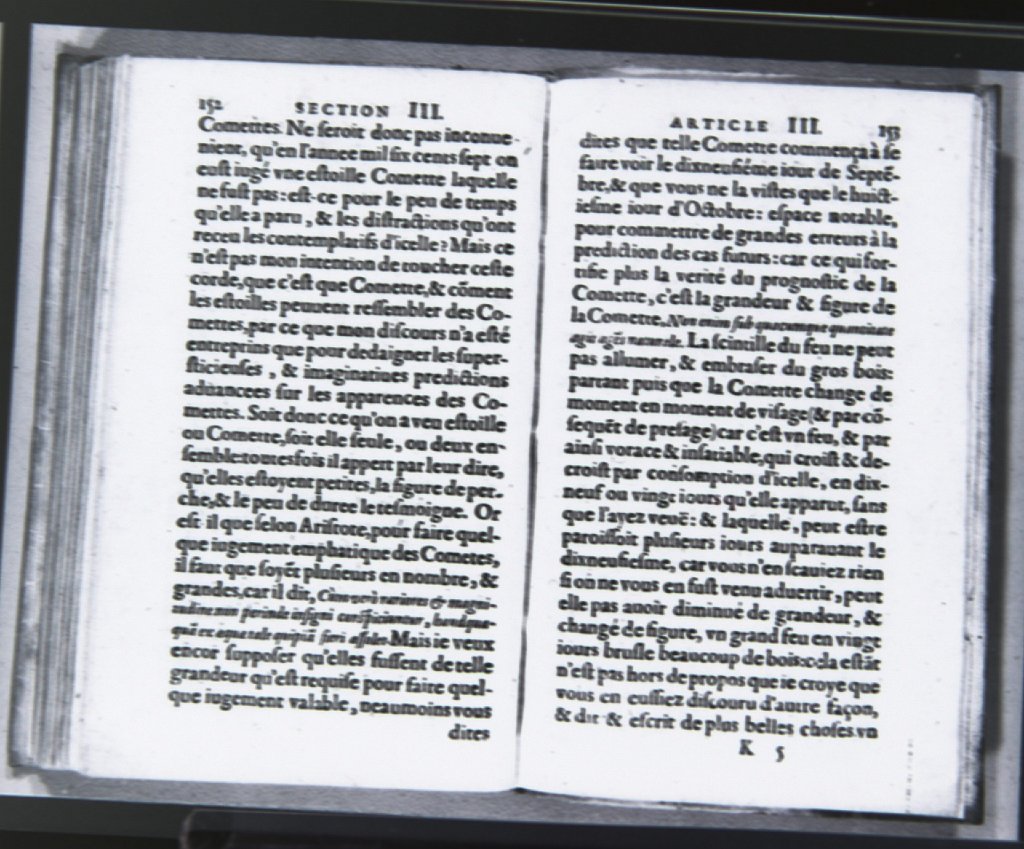 152 SECTION III.
Comettes. Ne seroit donc pas inconue-
nient, qu'en l'annee mil six cents sept on
eust iugé vne estoille Comette laquelle
ne fust pas: est-ce pour le peu de temps
qu'elle a paru, & les distractions qu'ont
receu les contemplatifs d'icelle? Mais ce
n'est pas mon intention de toucher ceste
corde, que c'est que Comette, & cõment
les estoilles peuuent ressembler des Co-
mettes, par ce que mon discours n'a esté
entreprins que pour dedaigner les super-
sticieuses, & imaginatiues predictions
aduancees sur les apparences des Co-
mettes. Soit donc ce qu'on a veu estoille
ou Comette, soit elle seule, ou deux en-
semble: toutesfois il appert par leur dire,
qu'elles estoyent petites, la figure de per-
che, & le peu de duree le tesmoigne. Or
est il que selon Aristote, pour faire quel-
que iugement emphatique des Cometes,
il faut que soyẽt plusieurs en nombre, &
grandes, car il dit,
Mais ie veux
encor supposer qu'elles fussent de telle
grandeur qu'est requise pour faire quel-
que iugement valable, neaumoins vous
dites
ARTICLE III. 153
dites que telle Comette commença à se
faire voir le dixneufiéme iour de Septẽ-
bre, & que vous ne la vistes que le huict-
iesme iour d'Octobre: espace notable,
pour commettre de grandes erreurs à la
prediction des cas futurs: car ce qui for-
tifie plus la verité du prognostic de la
Comette, c'est la grandeur & figure de
la Comette, Non enim sub quacumque quantitate
La scintille du feu ne peut
pas allumer, & embraser du gros bois:
partant puis que la Comette change de
moment en moment de visage (& par cõ-
sequẽt de presage) car c'est vn feu, & par
ainsi vorace & insatiable, qui croist & de-
croist par consomption d'icelle, en dix-
neuf ou vingt iours qu'elle apparut, sans
que l'ayez veuë: & laquelle, peut estre
paroissoit plusieurs iours auparauant le
dixneufiesme, car vous n'en sçauiez rien
si on ne vous en fust venu aduertir, peut
elle pas auoir diminué de grandeur, &
changé de figure, vn grand feu en vingt
iours brusle beaucoup de bois: cela estãt
n'est pas hors de propos que ie croye que
vous en eussiez discouru d'autre façon,
& dit & escrit de plus belles choses. vn
K 5